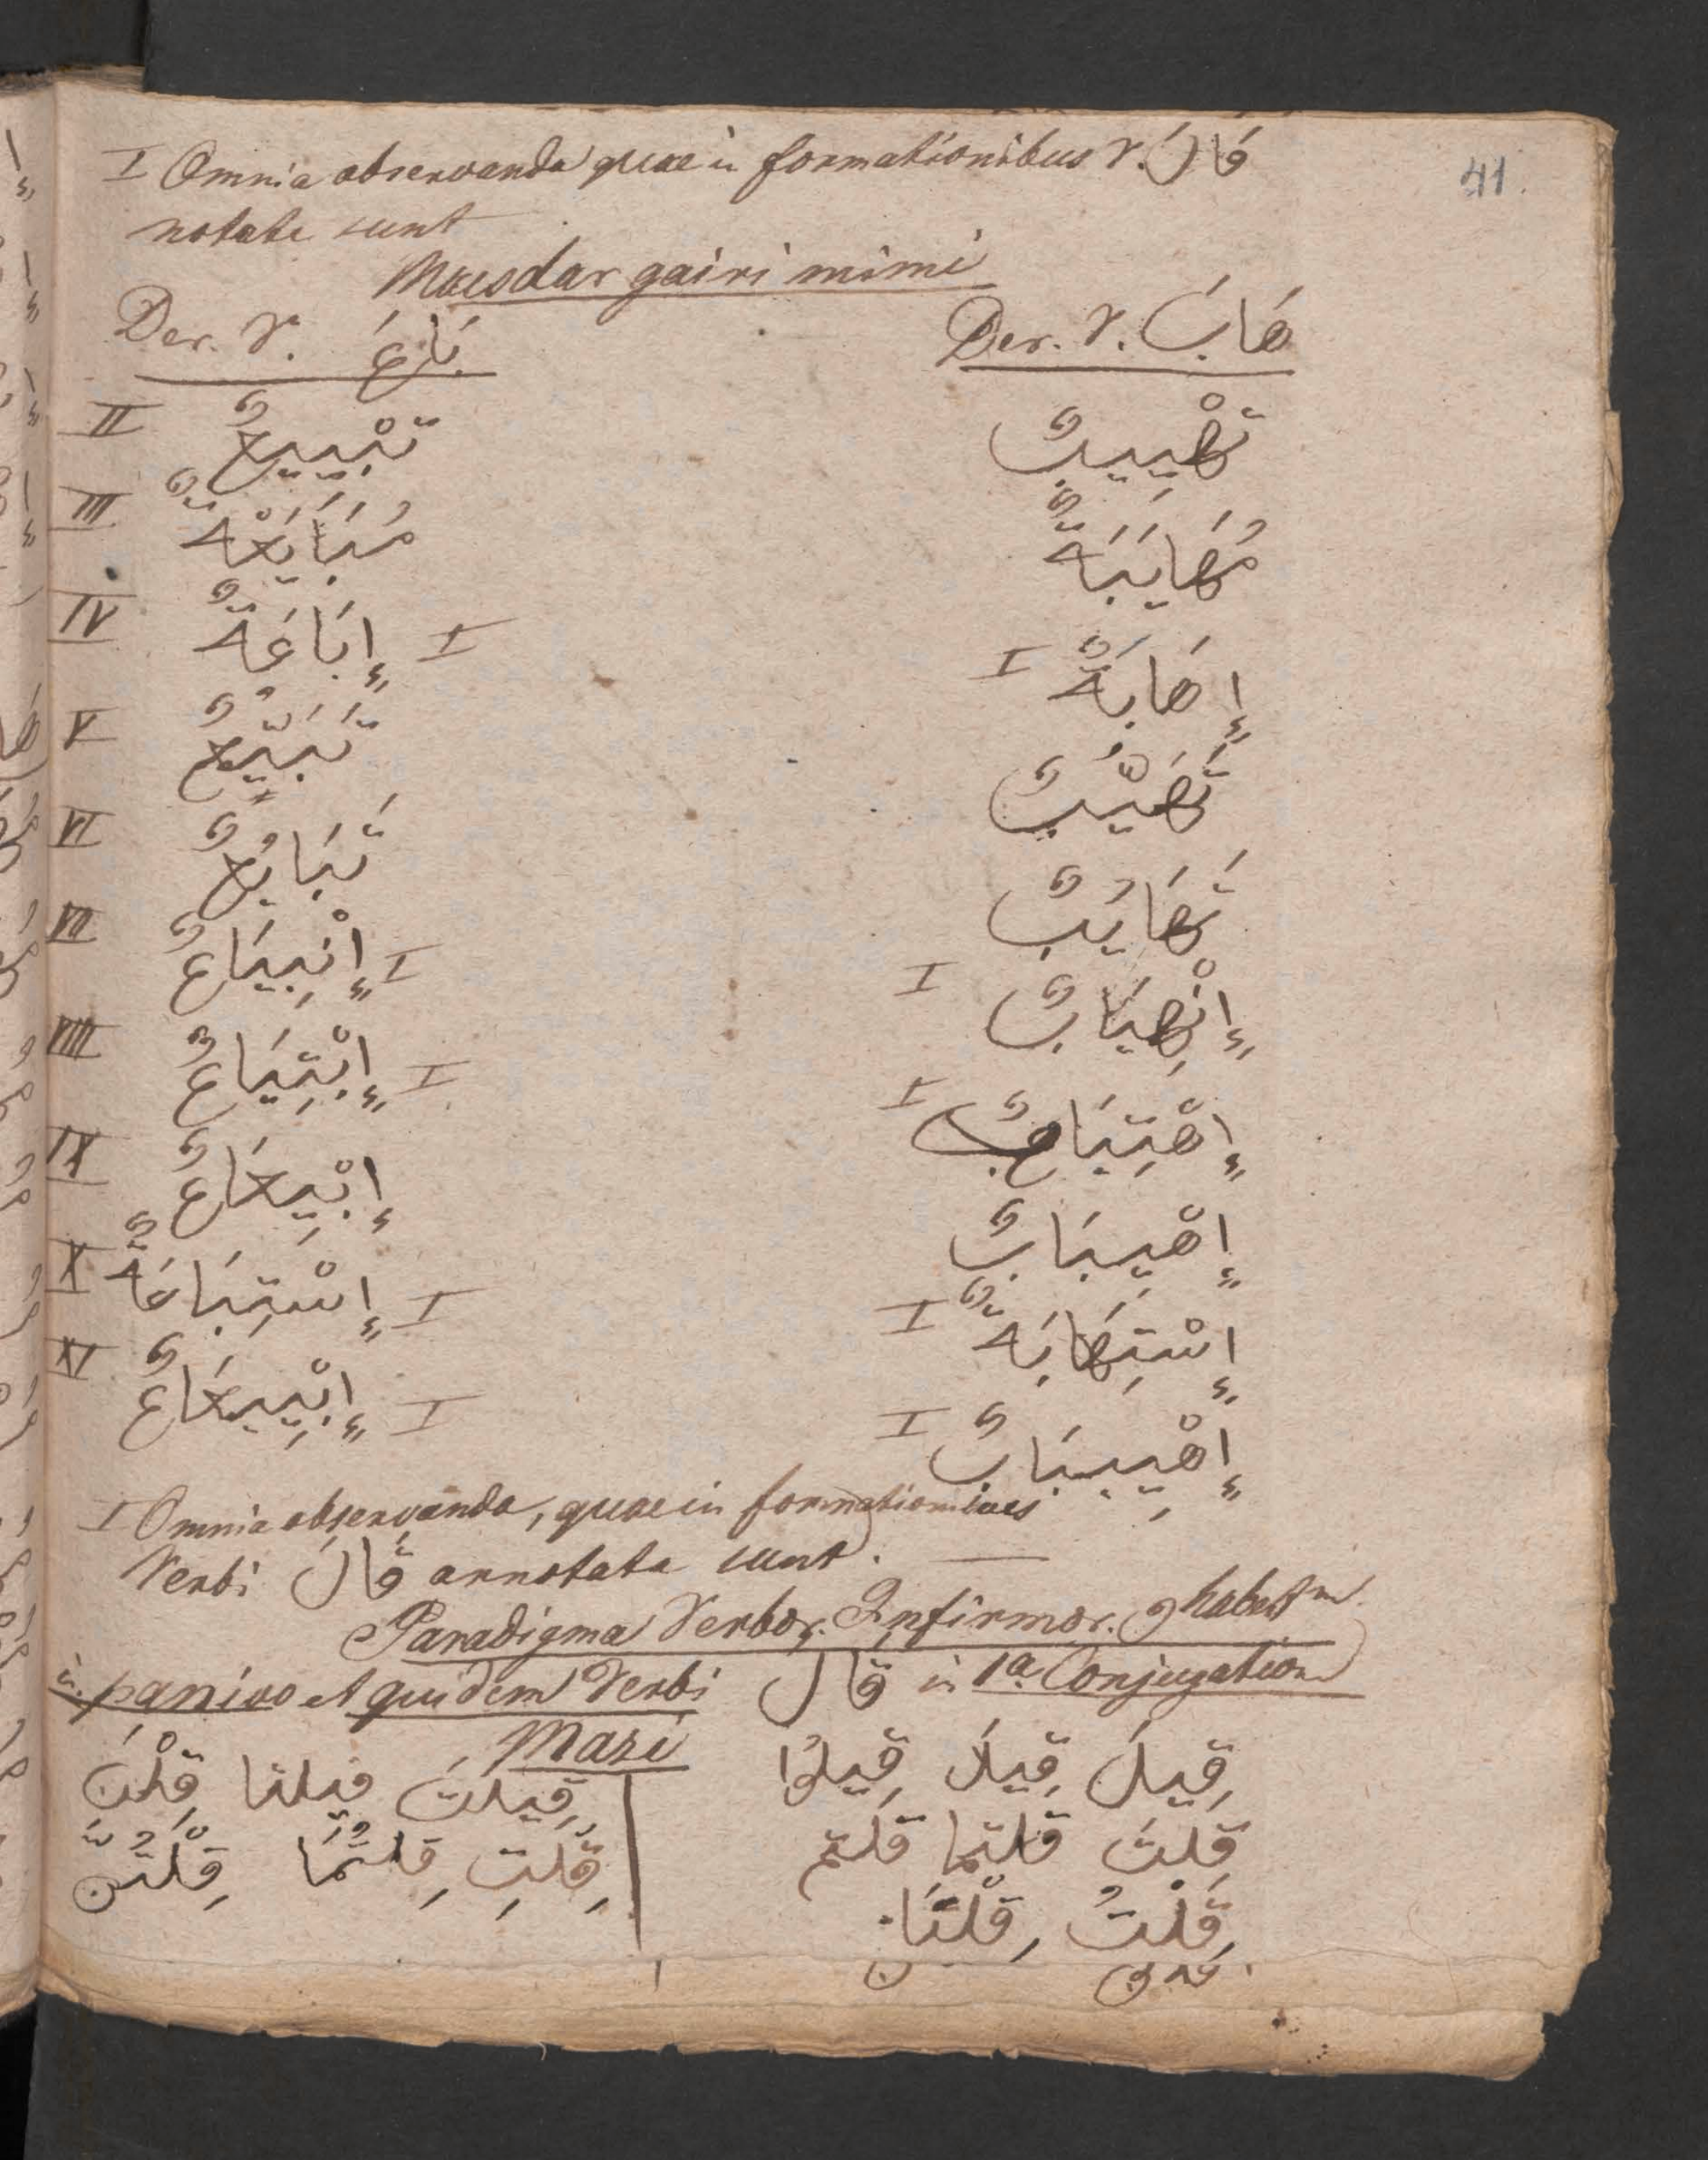 41.
I Omnia observanda quae in formationibus V. قَالَ
notate sunt
Masdar gairi mimi
Der. V. بَاعَ Der. V. هَابَ
II تَبْيِيعٌ تَهْيِيبٌ
III مُبَايَعَةٌ مُهَايَبَةٌ
IV إِبَاعَةٌ I إِهَابَةٌ I
V تَبَيُّعٌ تَهَيُّبٌ
VI تَبَايُعٌ تَهَايُبٌ
VII إِنْبِيَاعٌ I إِنْهِيَابٌ I
VIII إِبْتِيَاعٌ I إِهْتِيَابٌ I
IX إِبْيِعَاعٌ إِهْيِبَابٌ
X إِسْتِبَاعَةٌ I إِسْتِهَابَةٌ I
XI إِبْيِيعَاعٌ I إِهْيِيبَابٌ I
I Omnia observanda, quae in formationibus
Verbi قَالَ annotata sunt.
Paradigma Verbor. Infirmor. و habent
in passivo et quidem Verbi قال in 1a Conjugation
Mazi
قِيلَ قِيلَا قِيلُوا
قِيلَتْ قيلتا قِلْنَ
قِلتَ قلتما قلتم
قِلْتِ قِلتُمَا قِلْتُنَّ
قِلْتُ قِلْنَا